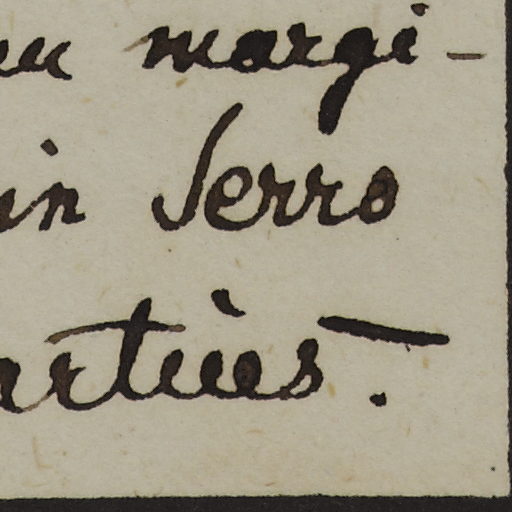 eu margi-
in Serro
artius.